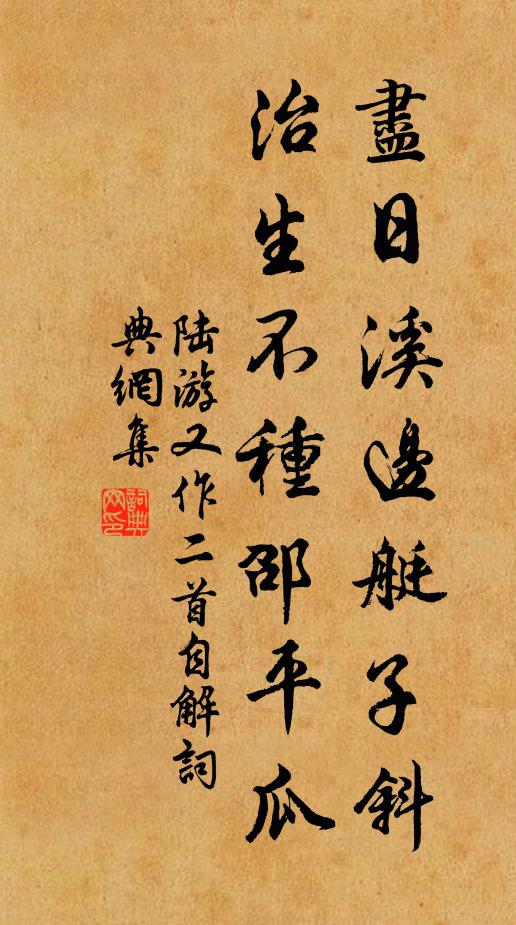 盡日溪邊艇子斜
治生不種邵平瓜
陸游又作二首自解詞
典網集
詞典網印